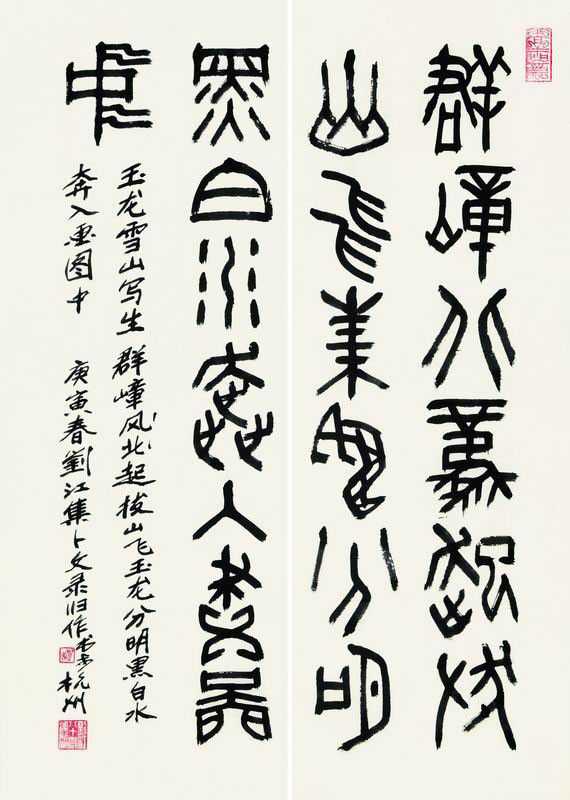 群嶂北風起拔
山飛玉龍分明
黑白水奔入畫圖
中
玉龙雪山写生 群嶂风北起拔山飞玉龙分明黑白水
奔入画图中 庚寅春劉江集卜文录旧作书于杭州